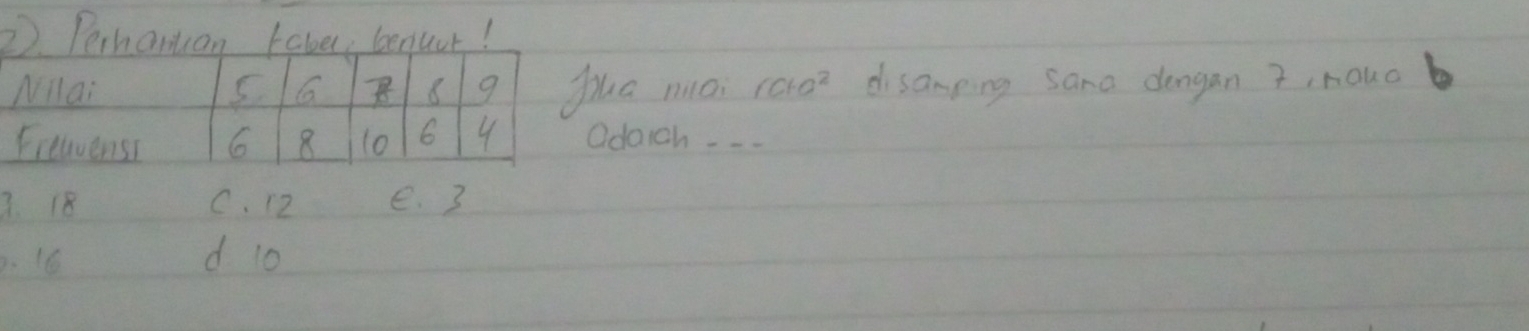 2) Perhatikan tabel berikut!
Nilai 5 6 7 8 9 Jika nilai rata² disamping sama dengan 7, maka b
Frekuensi 6 8 10 6 4 adalah ---
a. 18 c. 12 e. 3
b. 16 d 10